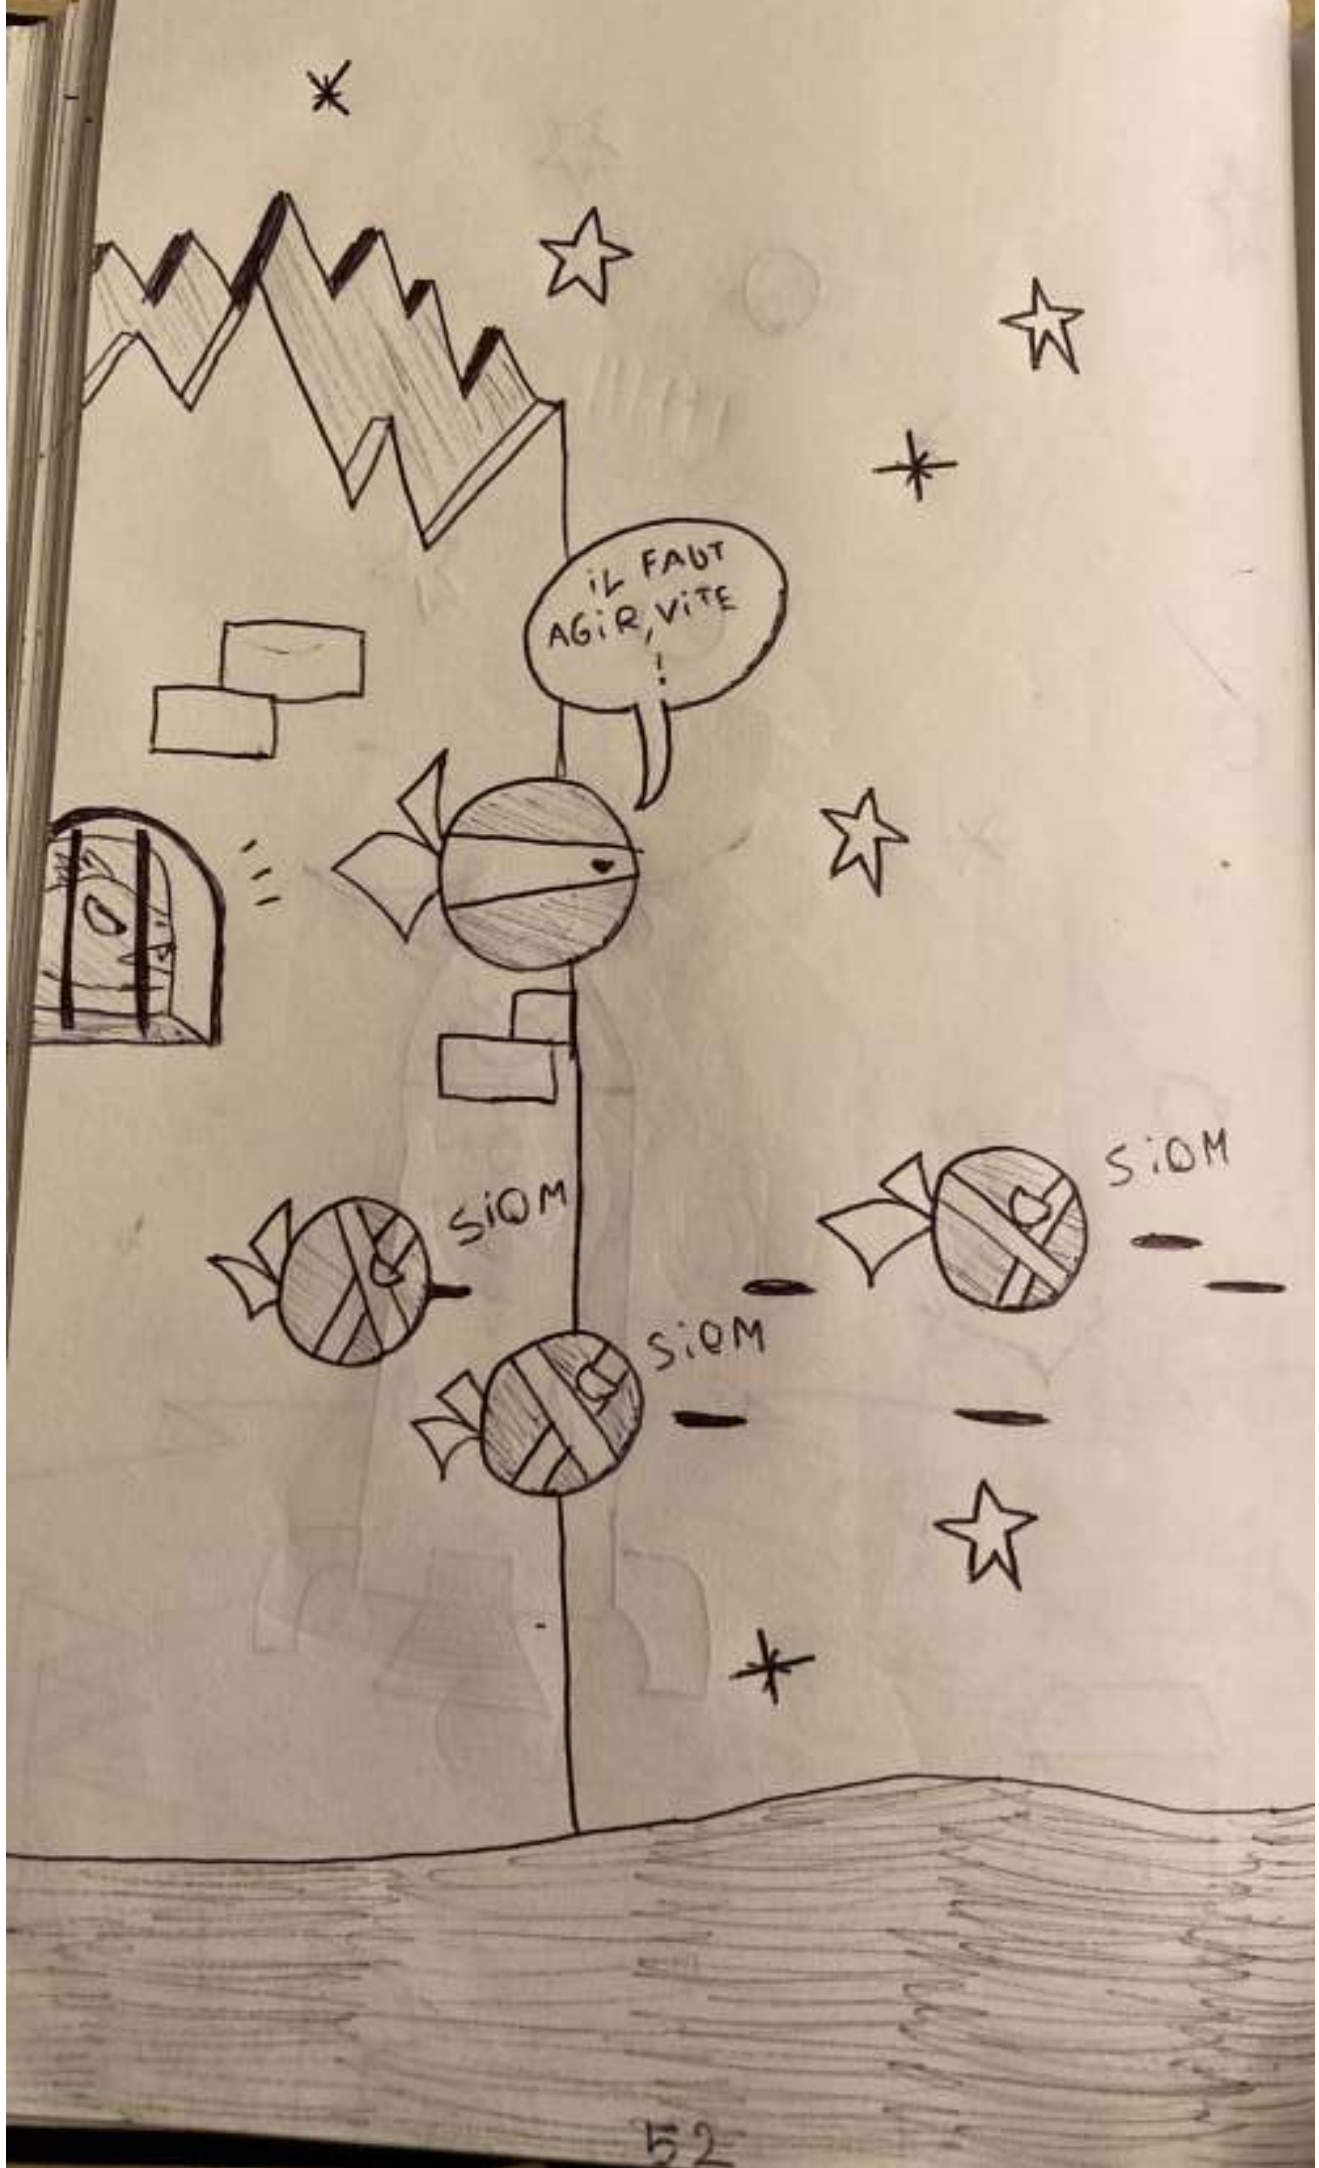 iL FAUT
AGiR, ViTE
!
SiOM
SiOM
SiOM
52